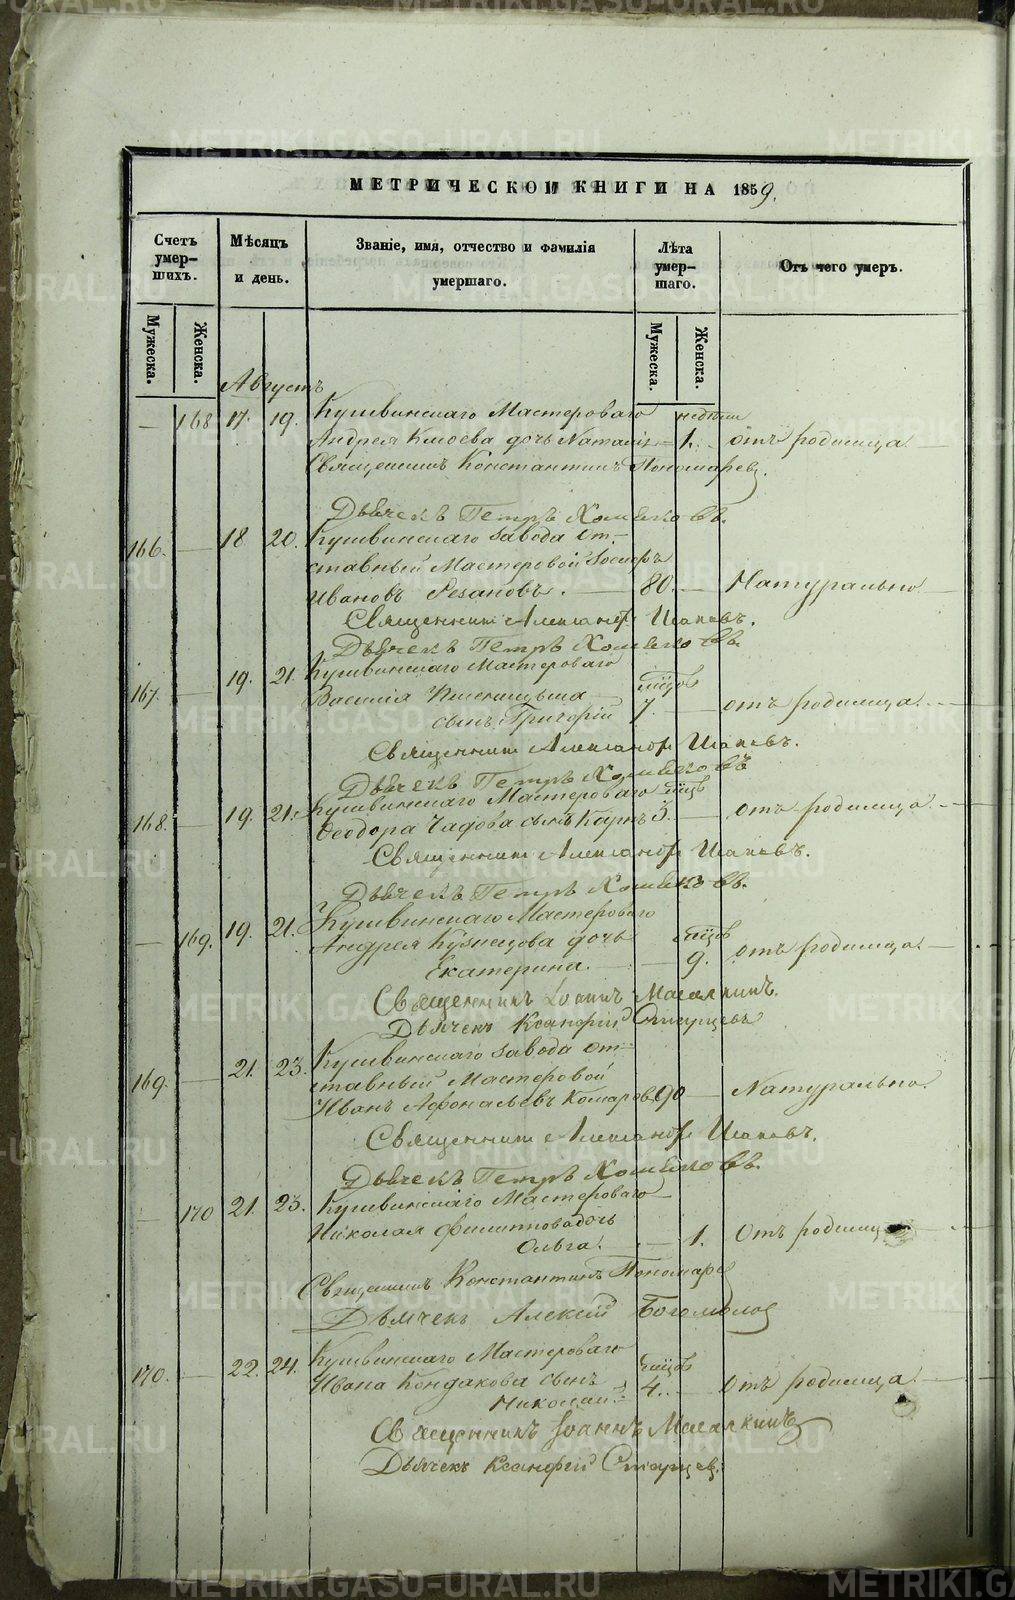 МЕТРИЧЕСКОЙ КНИГИ НА 1859.
Счетъ умер-шихъ.
Мѣсяцъ и день.
Званіе, имя, отчество и фамилія умершаго.
Лѣта умер-шаго.
Отъ чего умеръ.
Мужеска.
Женска.
Мужеска.
Женска.
Августъ
— 168 17. 19. Кушвинскаго Мастероваго недѣли
Андрея дочь Наталія — 1. отъ родимца
Священникъ Константинъ Пономаревъ.
Дьячекъ Петръ Хомяковъ.
166. — 18 20. Кушвинскаго завода от-
ставный Мастеровой
Ивановъ Резановъ. — 80. — Натурально
Священникъ Александръ Исаковъ.
Дьячекъ Петръ Хомяковъ.
167. 19. 21. Кушвинскаго Мастероваго
Василія
сынъ Григорій 7. — отъ родимца.
Священникъ Александръ Исаковъ.
Дьячекъ Петръ Хомяковъ
168. 19. 21. Кушвинскаго Мастероваго
Ѳеодора Чадова сынъ Карпъ 3. — отъ родимца.
Священникъ Александръ Исаковъ.
Дьячекъ Петръ Хомяковъ.
— 169. 19. 21. Кушвинскаго Мастероваго
Андрея Кузнецова дочь
Екатерина. — 9. отъ родимца.
Священникъ Іоаннъ
Дьячекъ Ксанфій Старцевъ
169. 21. 23. Кушвинскаго завода от-
ставный Мастеровой
Иванъ Афонасьевъ Комаровъ 90 — Натурально.
Священникъ Александръ Исаковъ.
Дьячекъ Петръ Хомяковъ.
— 170 21. 23. Кушвинскаго Мастероваго
Николая Филиппова дочь
Ольга. — 1. Отъ родимца
Священникъ Константинъ Пономаревъ
Дьячекъ Алексій Богомолов
170. — 22. 24. Кушвинскаго Мастероваго
Ивана Кондакова сынъ
Николай. 4. — Отъ родимца
Священникъ Іоаннъ
Дьячекъ Ксанфій Старцевъ.
METRIKI.GASO-URAL.RU